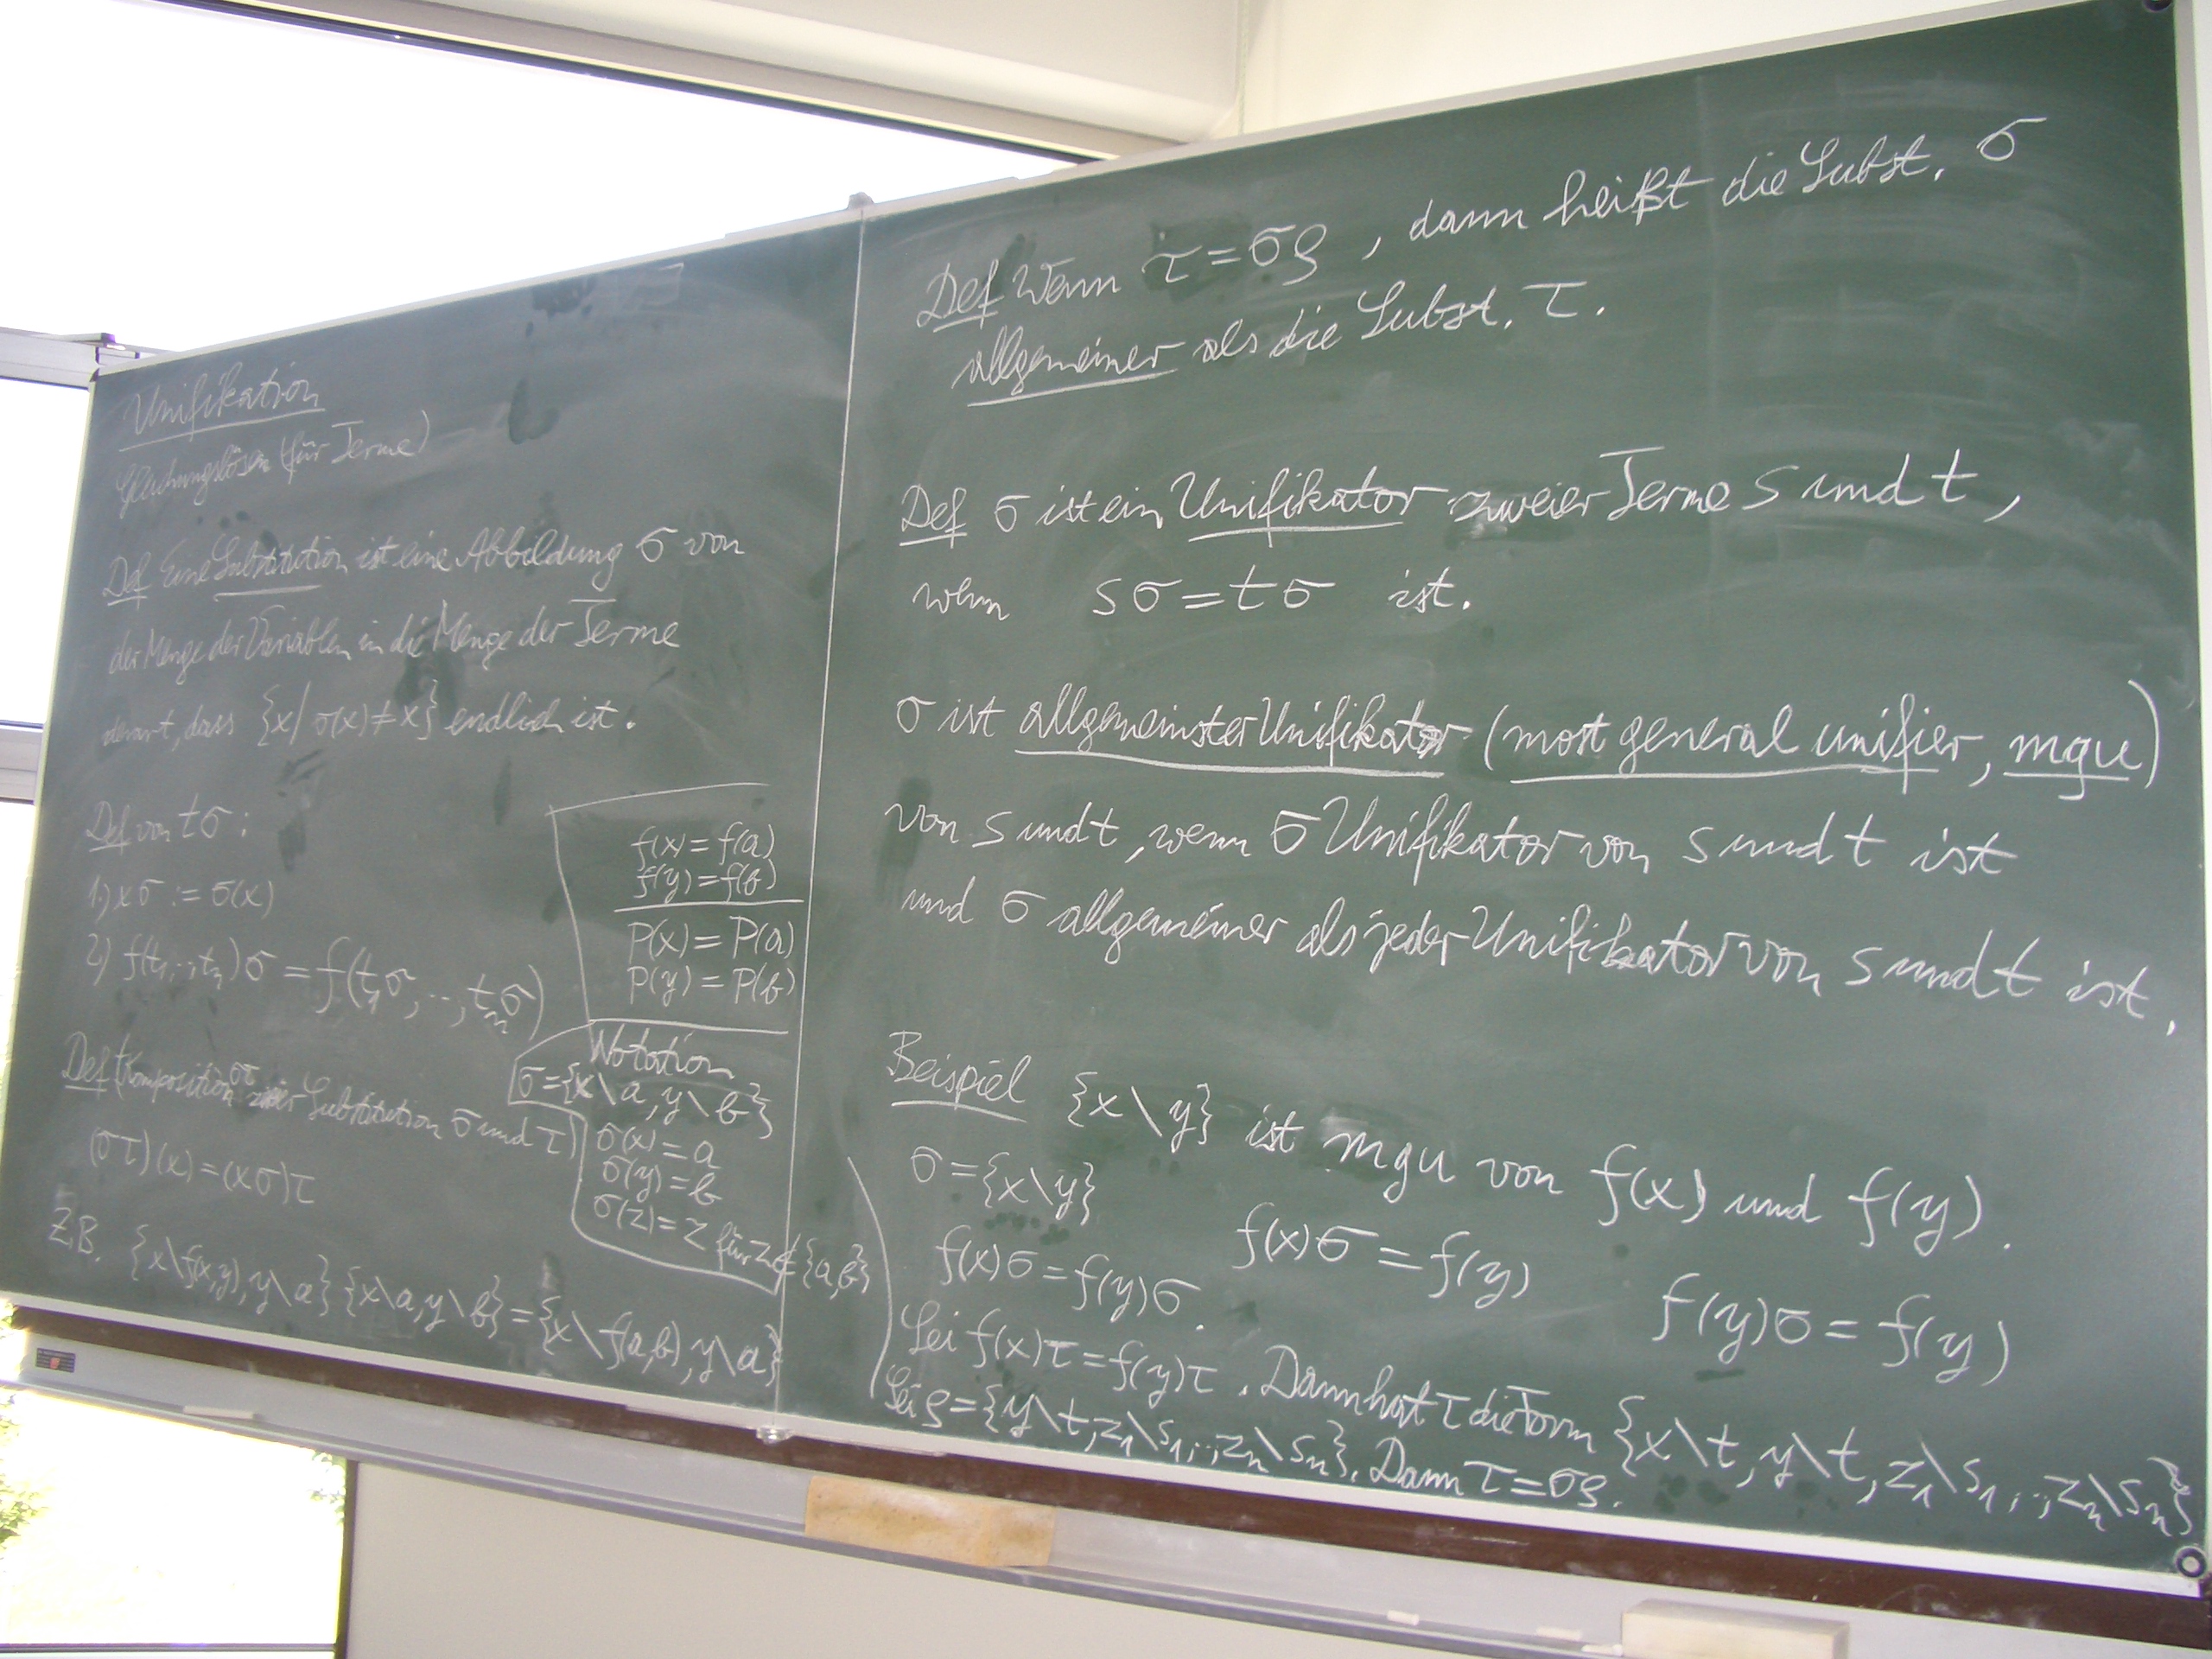 Unifikation
Gleichungslösen (für Terme)
Def Eine Substitution ist eine Abbildung σ von
der Menge der Variablen in die Menge der Terme
derart, dass {x | σ(x) ≠ x} endlich ist.
Def von tσ:
1.) xσ := σ(x)
2) f(t₁,..,tₙ)σ = f(t₁σ,..,tₙσ)
Def (Komposition στ zweier Substitution σ und τ)
(στ)(x) = (xσ)τ
Z.B. {x\f(x,y), y\a} {x\a, y\b} = {x\f(a,b), y\a}
f(x) = f(a)
f(y) = f(b)
P(x) = P(a)
P(y) = P(b)
Notation
σ = {x\a, y\b}
σ(x) = a
σ(y) = b
σ(z) = z für z ∉ {a,b}
Def Wenn τ = σρ, dann heißt die Subst. σ
allgemeiner als die Subst. τ.
Def σ ist ein Unifikator zweier Terme s und t,
wenn sσ = tσ ist.
σ ist allgemeinster Unifikator (most general unifier, mgu)
von s und t, wenn σ Unifikator von s und t ist
und σ allgemeiner als jeder Unifikator von s und t ist.
Beispiel {x\y} ist mgu von f(x) und f(y).
σ = {x\y}
f(x)σ = f(y)σ. f(x)σ = f(y) f(y)σ = f(y)
Sei f(x)τ = f(y)τ. Dann hat τ die Form {x\t, y\t, z₁\s₁,..,zₙ\sₙ}
Sei ρ = {y\t, z₁\s₁,..,zₙ\sₙ}. Dann τ = σρ.